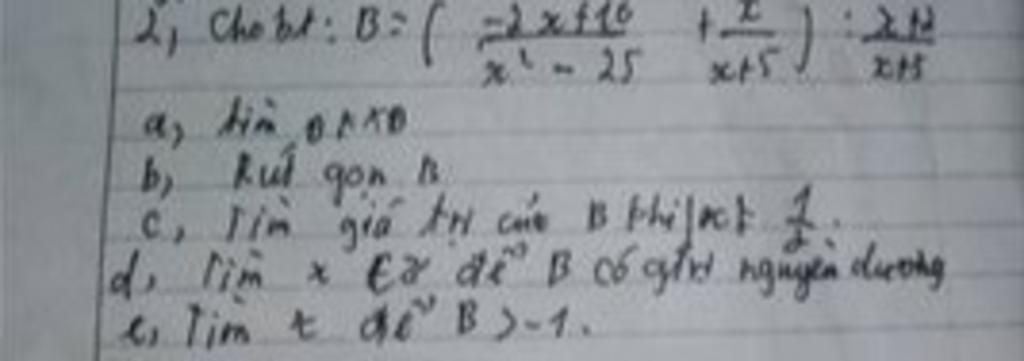 2, Cho bt: B = ( (-2x+10)/(x² - 25) + x/(x+5) ) : (x+2)/(x+5)
a, tìm ĐKXĐ
b, Rút gọn B
c, Tìm giá trị của B khi |x| = 1/2.
d, Tìm x ∈ Z để B có gtrị nguyên dương
e, Tìm x để B > -1.